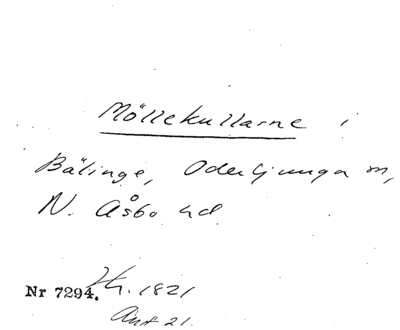 Möllekullarne i
Bälinge, Oderljunga m,
N. Åsbo hd
Nr 7294. 1821
21.